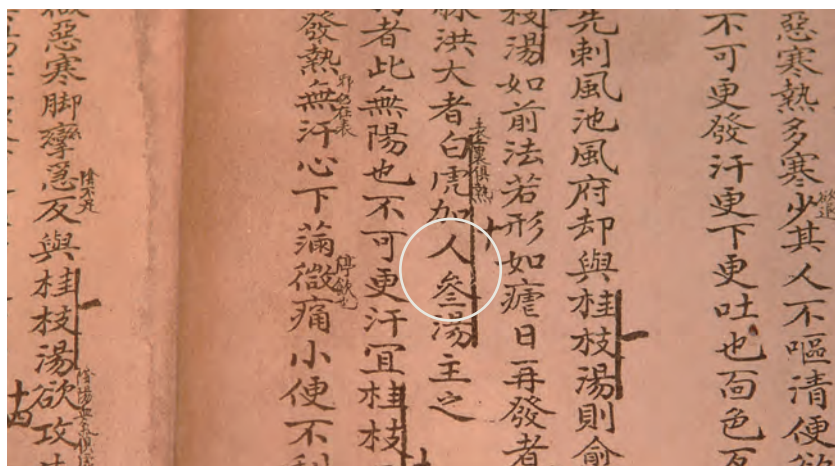 惡寒熱多寒少其人不嘔清便欲
不可更發汗更下更吐也面色反
先刺風池風府却與桂枝湯則愈
枝湯如前法若形如瘧日再發者
脉洪大者白虎加人參湯主之
表裏俱熱
者此無陽也不可更汗宜桂枝
發熱無汗心下滿微痛小便不利
邪氣在表
停飲也
惡寒脚攣急反與桂枝湯欲攻
十四